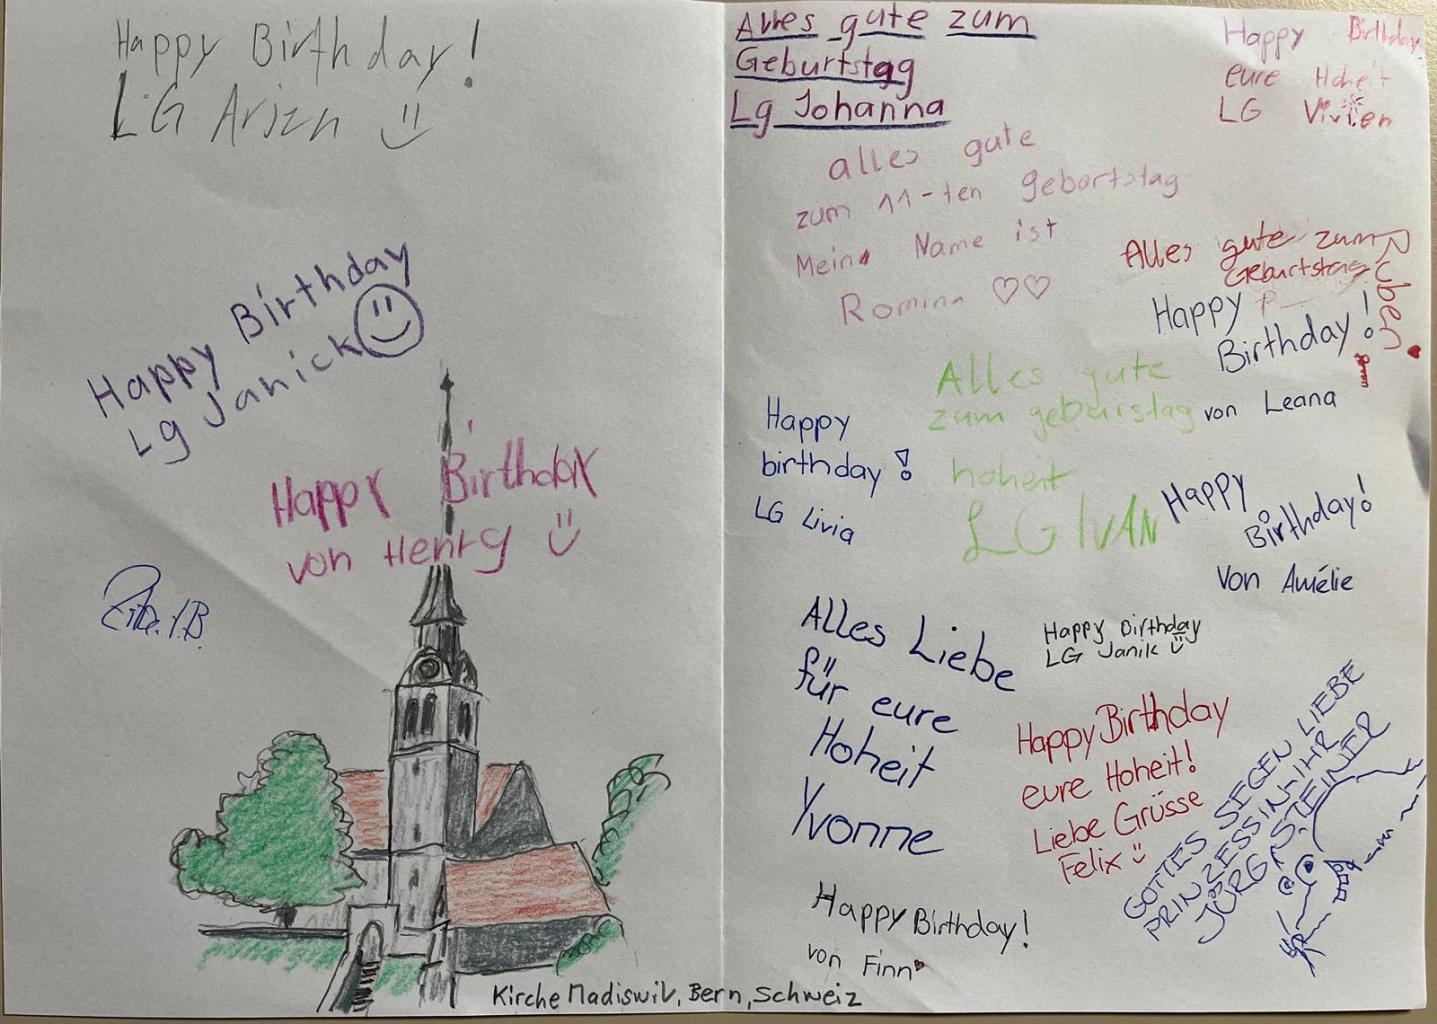 Happy Birthday!
LG Arizn
Happy Birthday
Lg Janick
Happy Birthday
von Henry
Kirche Madiswil, Bern, Schweiz
Alles gute zum
Geburtstag
Lg Johanna
Happy Birthday
eure Hoheit
LG Vivien
alles gute
zum 11-ten gebortstag
Mein Name ist
Romina ♡♡
Alles gute zum
Geburtstag
Happy
Birthday!
von Leana
Alles gute
zum geburstag
hoheit
LG IVAN
Happy
birthday!
LG Livia
Happy
Birthday!
Von Amélie
Alles Liebe
für eure
Hoheit
Yvonne
Happy Birthday
LG Janik
Happy Birthday
eure Hoheit!
Liebe Grüsse
Felix
GOTTES SEGEN LIEBE
PRINZESSIN-IHR
JÜRG STEINER
Happy Birthday!
von Finn